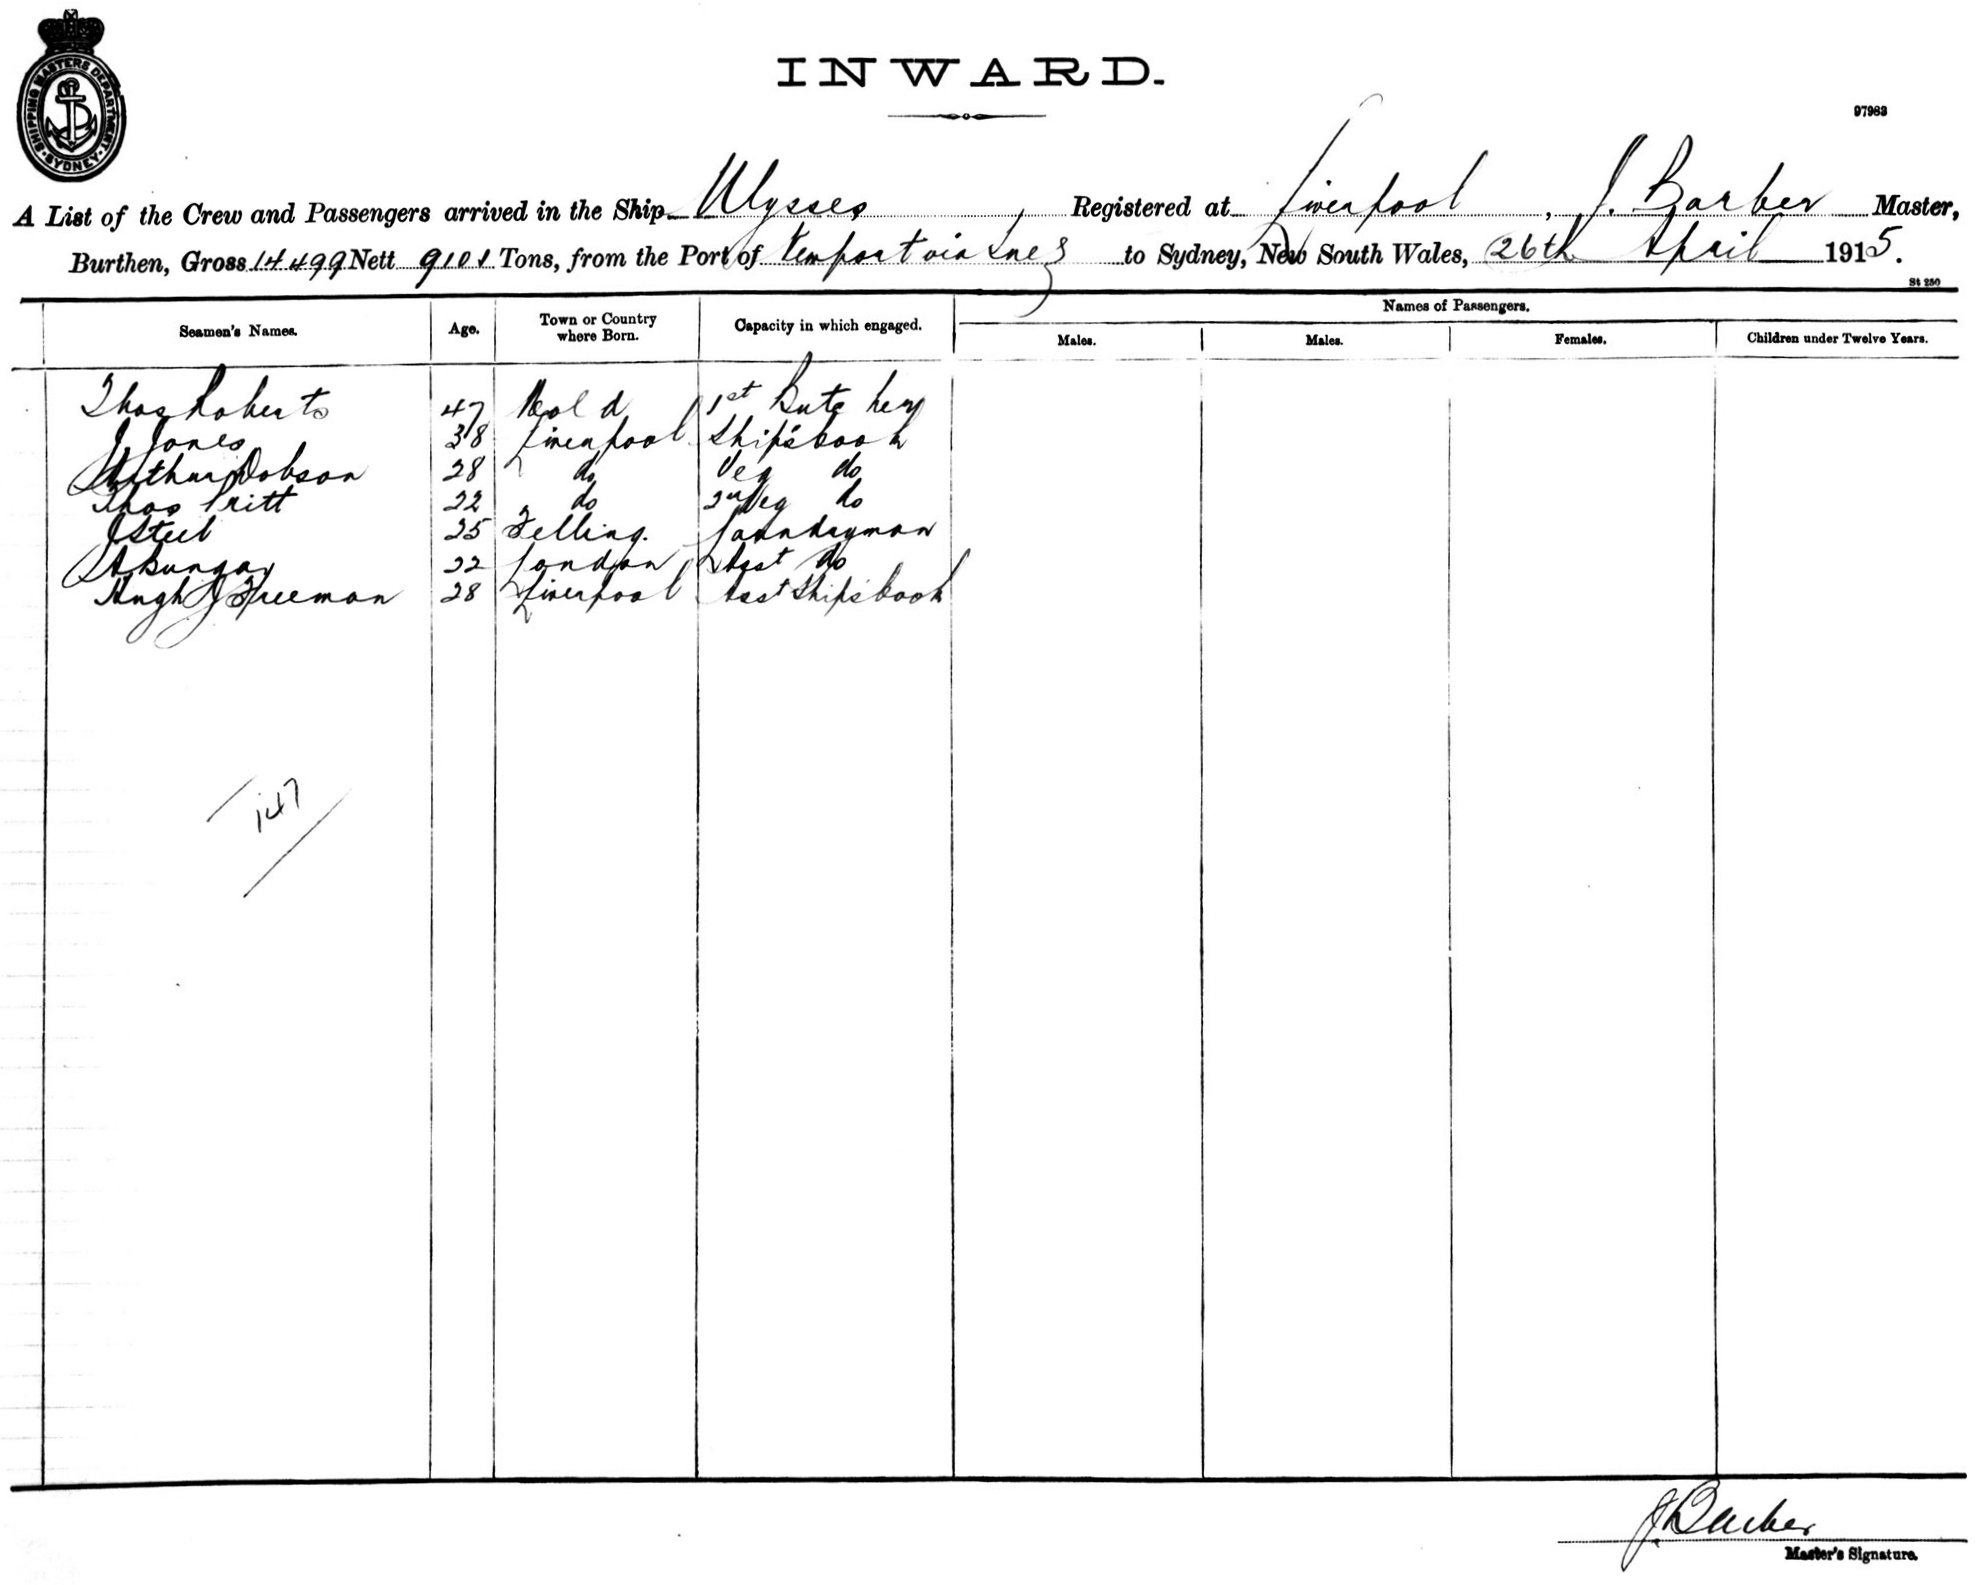 SHIPPING MASTERS DEPARTMENT SYDNEY
INWARD.
97983
A List of the Crew and Passengers arrived in the Ship Ulysses, Registered at Liverpool, J. Barber Master,
Burthen, Gross 14499 Nett 9101 Tons, from the Port of via Suez to Sydney, New South Wales, 26th April 1915.
St 250
Seamen's Names. Age. Town or Country where Born. Capacity in which engaged. Names of Passengers.
Males. Males. Females. Children under Twelve Years.
Thos Roberts 47 Mold 1st Butcher
J Jones 38 Liverpool Ship's Cook
Arthur Dobson 28 do Veg do
Thos Pritt 22 do 2nd Veg do
J Steel 25 Felling. Laundryman
A Bungay 22 London Asst do
Hugh J Freeman 28 Liverpool Asst Ship's Cook
147
J Barber
Master's Signature.